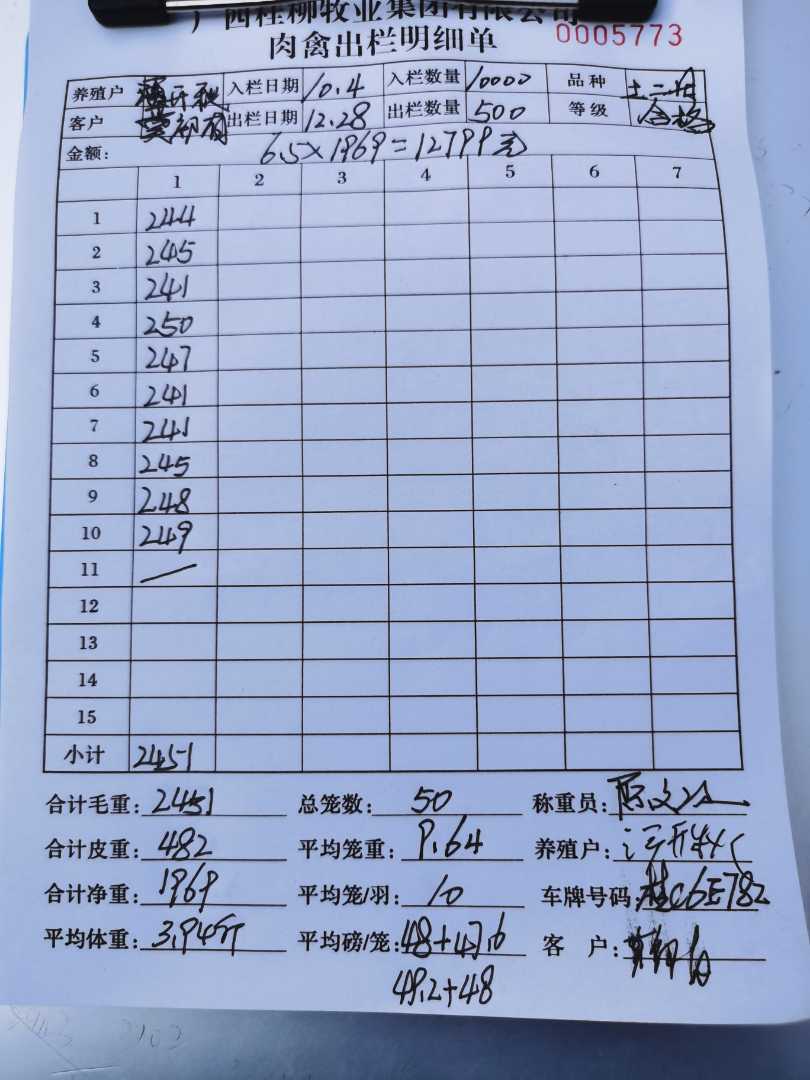 广西桂柳牧业集团有限公司
肉禽出栏明细单 0005773
养殖户 入栏日期 10.4 入栏数量 10000 品种 土二
客户 出栏日期 12.28 出栏数量 500 等级 合格
金额: 6.5×1969=12799元
1 2 3 4 5 6 7
1 244
2 245
3 241
4 250
5 247
6 241
7 241
8 245
9 248
10 249
11 —
12
13
14
15
小计 2451
合计毛重: 2451 总笼数: 50 称重员:
合计皮重: 482 平均笼重: 9.64 养殖户:
合计净重: 1969 平均笼/羽: 10 车牌号码: 桂C6E782
平均体重: 3.94斤 平均磅/笼: 48+47.6 客 户:
49.2+48